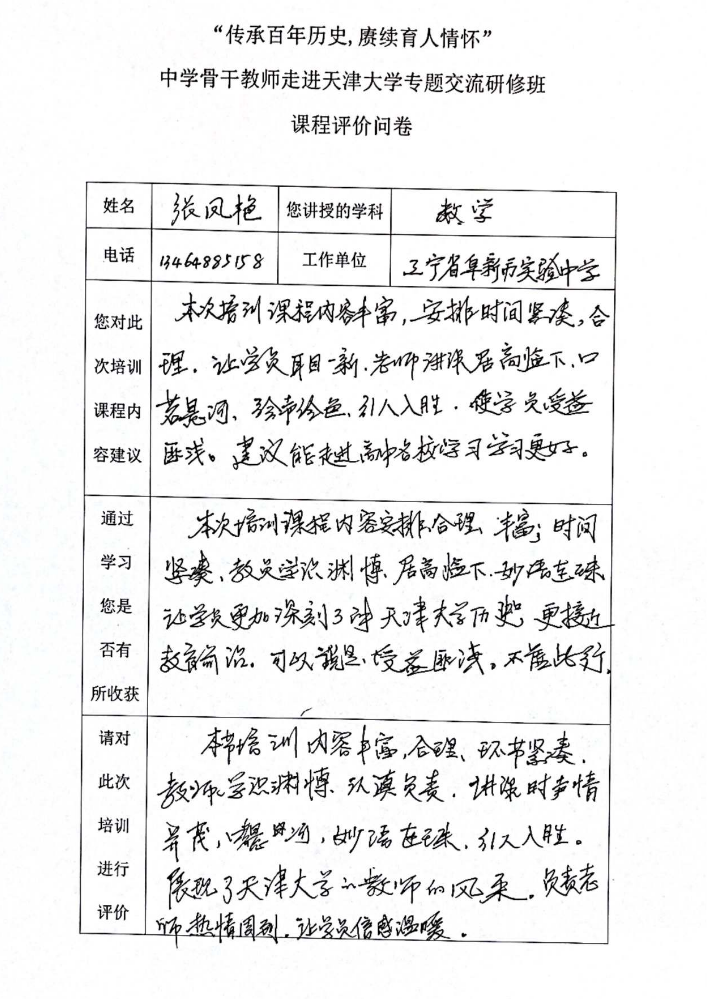 “传承百年历史,赓续育人情怀”
中学骨干教师走进天津大学专题交流研修班
课程评价问卷
姓名 张凤艳 您讲授的学科 数学
电话 13464885158 工作单位 辽宁省阜新市实验中学
您对此次培训课程内容建议
本次培训课程内容丰富,安排时间紧凑,合
理,让学员耳目一新.老师讲课居高临下,口
若悬河、引人入胜.使学员受益
匪浅。建议能走进高中名校学习学习更好。
通过学习您是否有所收获
本次培训课程内容安排合理、丰富;时间
紧凑、教员学识渊博.居高临下.妙语连珠
让学员更加深刻了解天津大学历史,更接近
教育前沿.可以说是.受益匪浅。不虚此行.
请对此次培训进行评价
本节培训内容丰富,合理、环节紧凑.
教师学识渊博.认真负责.讲课时声情
并茂,口若悬河,妙语连珠.引人入胜。
展现了天津大学的教师的风采.负责老
师热情周到.让学员倍感温暖.